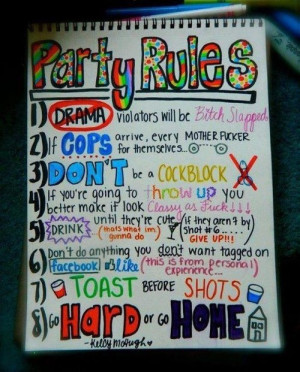 Party Rules
1) DRAMA violators will be Bitch Slapped
2) If COPS arrive, every MOTHER FUCKER
for themselves...
3) DON'T be a COCKBLOCK
4) If you're going to throw up you
better make it look Classy as Fuck↓↓↓
5) DRINK until they're cute (if they aren't by
(thats what im gonna do Shot #6.....
GIVE UP!!!
6) Don't do anything you don't want tagged on
facebook like (this is from personal
experience...
7) TOAST BEFORE SHOTS
8) GO HARD or GO HOME
-Kelby McHugh♥